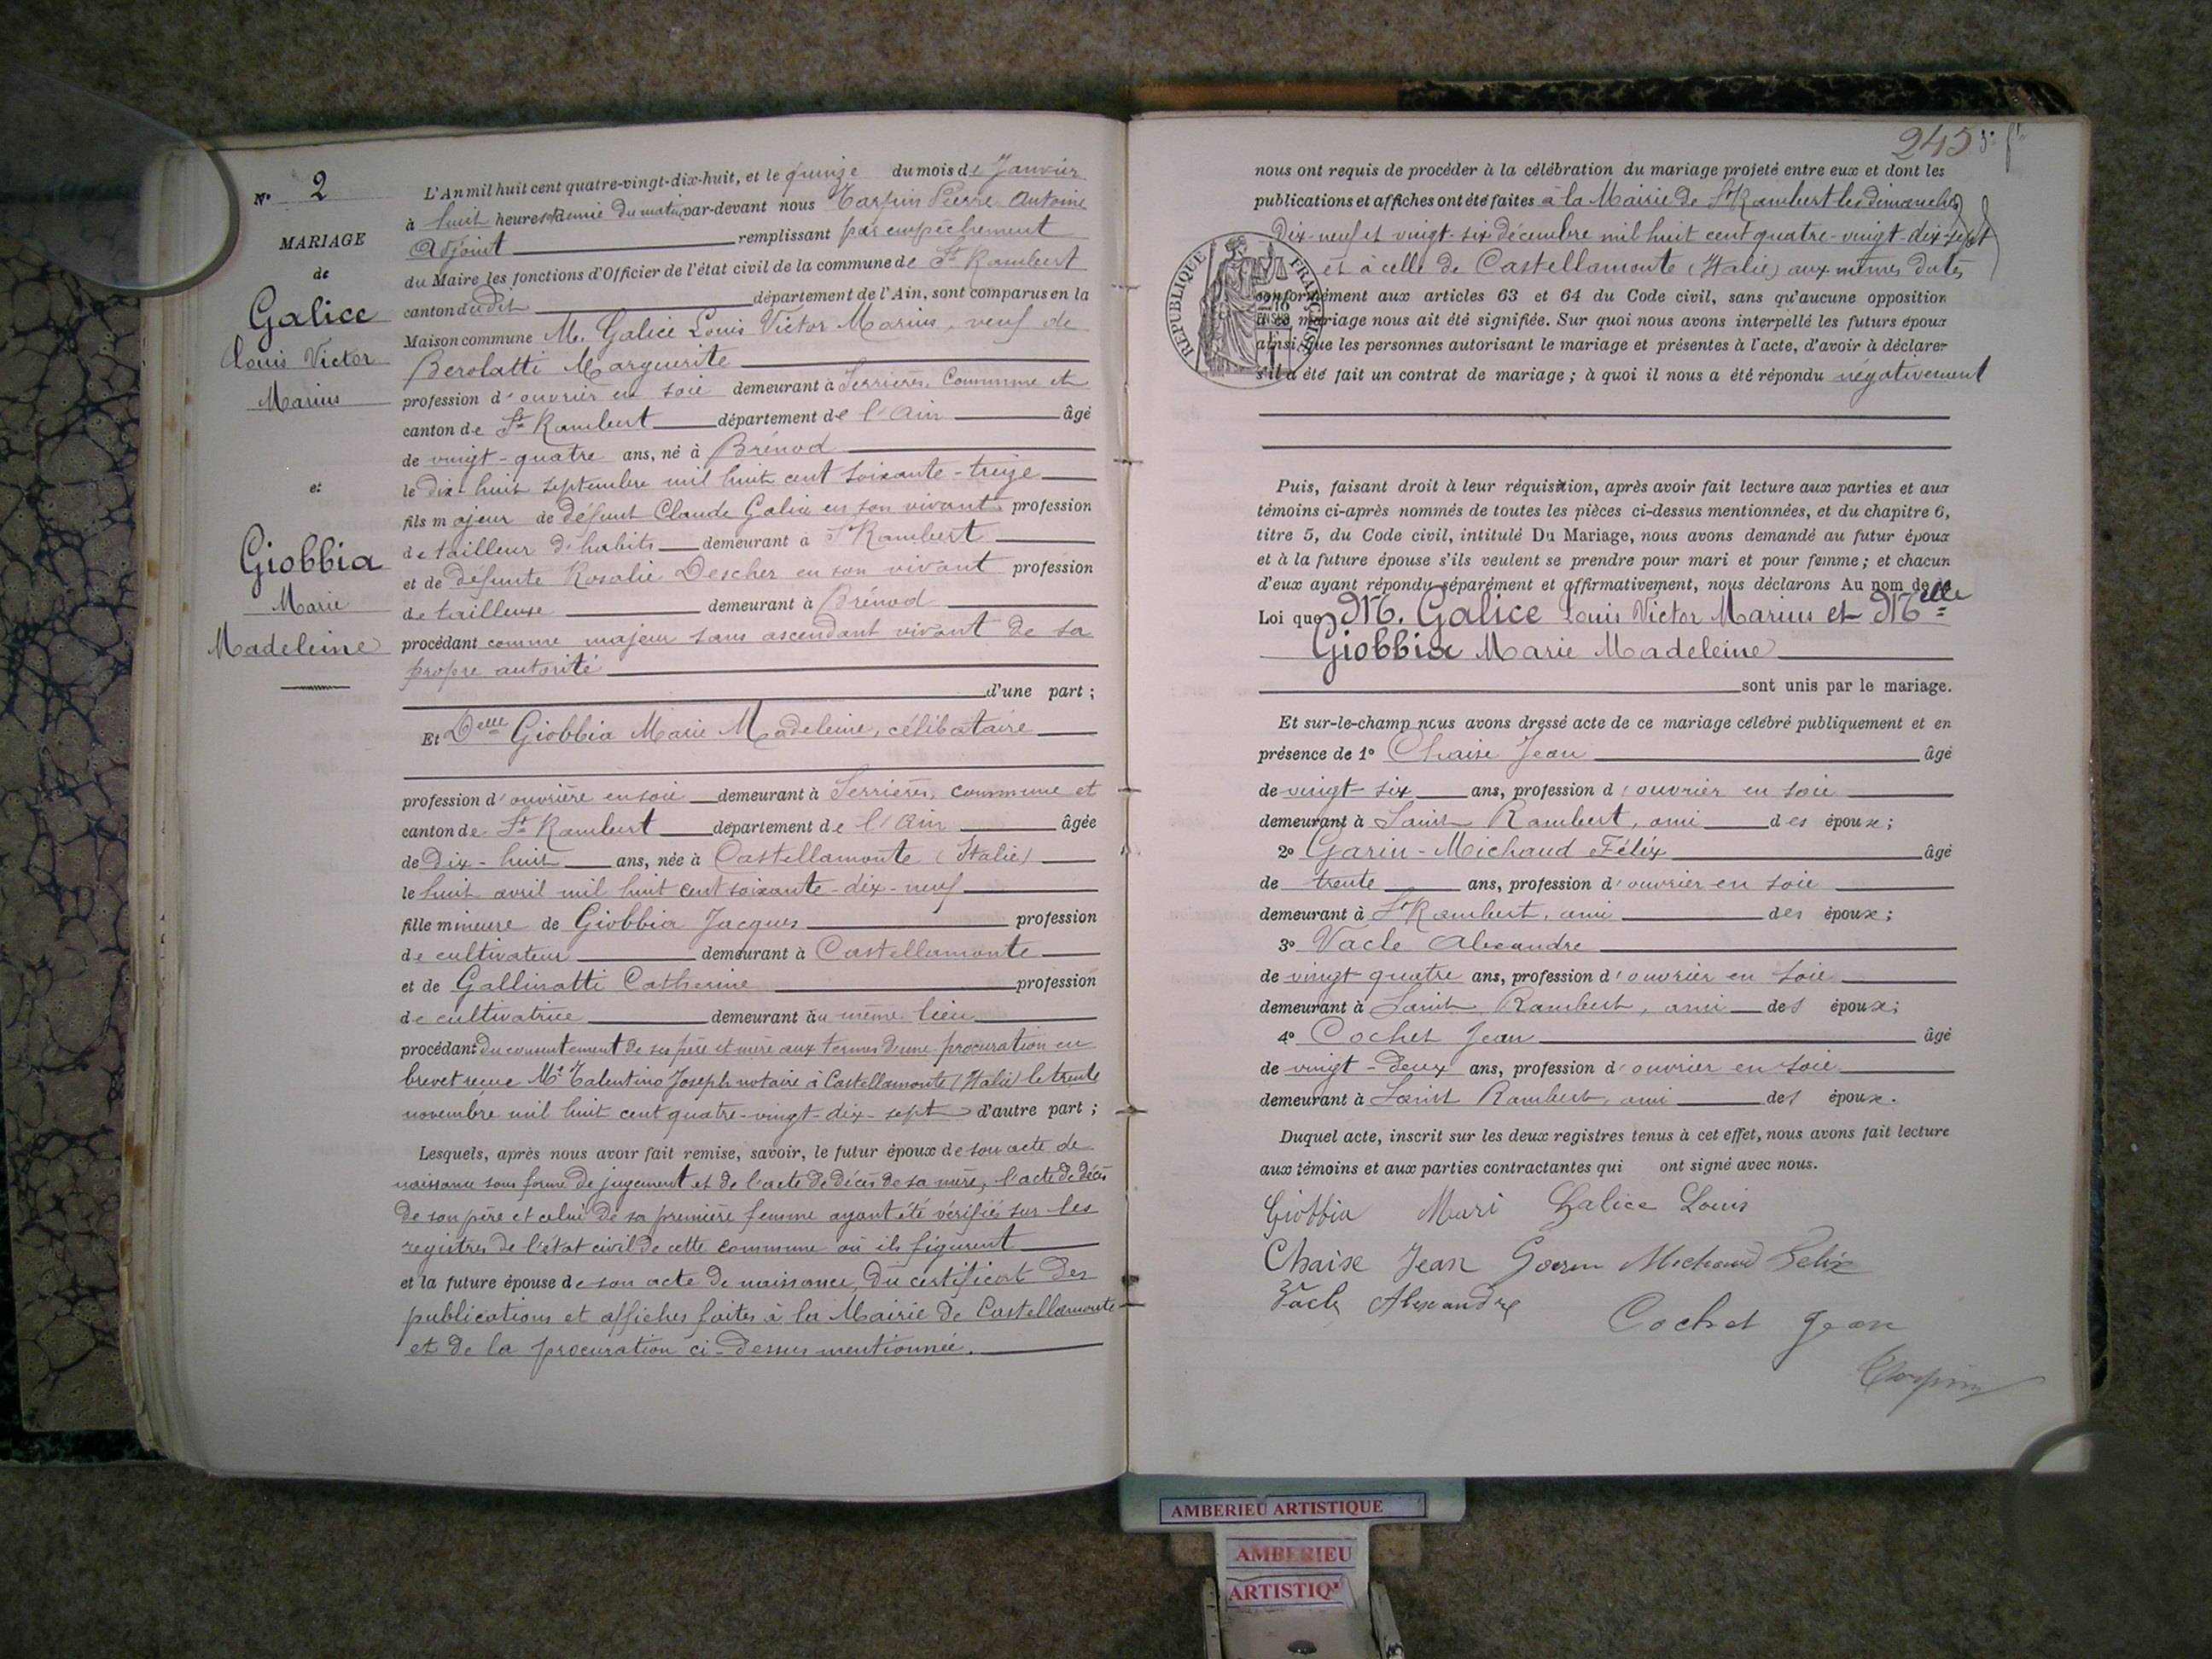 N° 2
MARIAGE
de
Galice
Louis Victor
Marius
et
Giobbia
Marie
Madeleine
L'An mil huit cent quatre-vingt-dix-huit, et le quinze du mois de Janvier
à huit heures et demie du matin par-devant nous Tarpin Pierre Antoine
Adjoint remplissant par empêchement
du Maire les fonctions d'Officier de l'état civil de la commune de St Rambert
canton dudit département de l'Ain, sont comparus en la
Maison commune M. Galice Louis Victor Marius, veuf de
Berolatti Marguerite
profession d'ouvrier en soie demeurant à Serrières, Commune et
canton de St Rambert département de l'Ain âgé
de vingt-quatre ans, né à Brénod
le dix-huit septembre mil huit cent soixante-treize
fils majeur de défunt Claude Galice en son vivant profession
de tailleur d'habits demeurant à St Rambert
et de défunte Rosalie Descher en son vivant profession
de tailleuse demeurant à Brénod
procédant comme majeur sans ascendant vivant de sa
propre autorité
d'une part ;
Et Delle Giobbia Marie Madeleine, célibataire
profession d'ouvrière en soie demeurant à Serrières, commune et
canton de St Rambert département de l'Ain âgée
de Dix-huit ans, née à Castellamonte (Italie)
le huit avril mil huit cent soixante-dix-neuf
fille mineure de Giobbia Jacques profession
de cultivateur demeurant à Castellamonte
et de Gallinatti Catherine profession
de cultivatrice demeurant au même lieu
procédant du consentement de ses père et mère aux termes d'une procuration en
brevet reçue Me Talentino Joseph notaire à Castellamonte (Italie) le trente
novembre mil huit cent quatre-vingt-dix-sept d'autre part ;
Lesquels, après nous avoir fait remise, savoir, le futur époux de son acte de
naissance sous forme de jugement et de l'acte de décès de sa mère, l'acte de décès
de son père et celui de sa première femme ayant été vérifiés sur les
registres de l'état civil de cette commune où ils figurent
et la future épouse de son acte de naissance, du certificat des
publications et affiches faites à la Mairie de Castellamonte
et de la procuration ci-dessus mentionnée.
245
nous ont requis de procéder à la célébration du mariage projeté entre eux et dont les
publications et affiches ont été faites à la Mairie de St Rambert les dimanches
Dix-neuf et vingt-six décembre mil huit cent quatre-vingt-dix-sept
et à celle de Castellamonte (Italie) aux mêmes dates
REPUBLIQUE FRANÇAISE
conformément aux articles 63 et 64 du Code civil, sans qu'aucune opposition
à ce mariage nous ait été signifiée. Sur quoi nous avons interpellé les futurs époux
ainsi que les personnes autorisant le mariage et présentes à l'acte, d'avoir à déclarer
s'il a été fait un contrat de mariage ; à quoi il nous a été répondu négativement
Puis, faisant droit à leur réquisition, après avoir fait lecture aux parties et aux
témoins ci-après nommés de toutes les pièces ci-dessus mentionnées, et du chapitre 6,
titre 5, du Code civil, intitulé Du Mariage, nous avons demandé au futur époux
et à la future épouse s'ils veulent se prendre pour mari et pour femme ; et chacun
d'eux ayant répondu séparément et affirmativement, nous déclarons Au nom de la
Loi que M. Galice Louis Victor Marius et Melle
Giobbia Marie Madeleine
sont unis par le mariage.
Et sur-le-champ nous avons dressé acte de ce mariage célébré publiquement et en
présence de 1° Chaise Jean âgé
de vingt six ans, profession d'ouvrier en soie
demeurant à Saint Rambert, ami des époux ;
2° Garin-Michaud Félix âgé
de trente ans, profession d'ouvrier en soie
demeurant à St Rambert, ami des époux ;
3° Vacle Alexandre
de vingt quatre ans, profession d'ouvrier en soie
demeurant à Saint Rambert, ami des époux ;
4° Cochet Jean âgé
de vingt-deux ans, profession d'ouvrier en soie
demeurant à Saint Rambert, ami des époux.
Duquel acte, inscrit sur les deux registres tenus à cet effet, nous avons fait lecture
aux témoins et aux parties contractantes qui ont signé avec nous.
Giobbia Mari Galice Louis
Chaise Jean Garin Michaud Felix
Vacle Alexandre
Cochet Jean
Tarpin
AMBERIEU ARTISTIQUE
AMBERIEU
ARTISTIQ